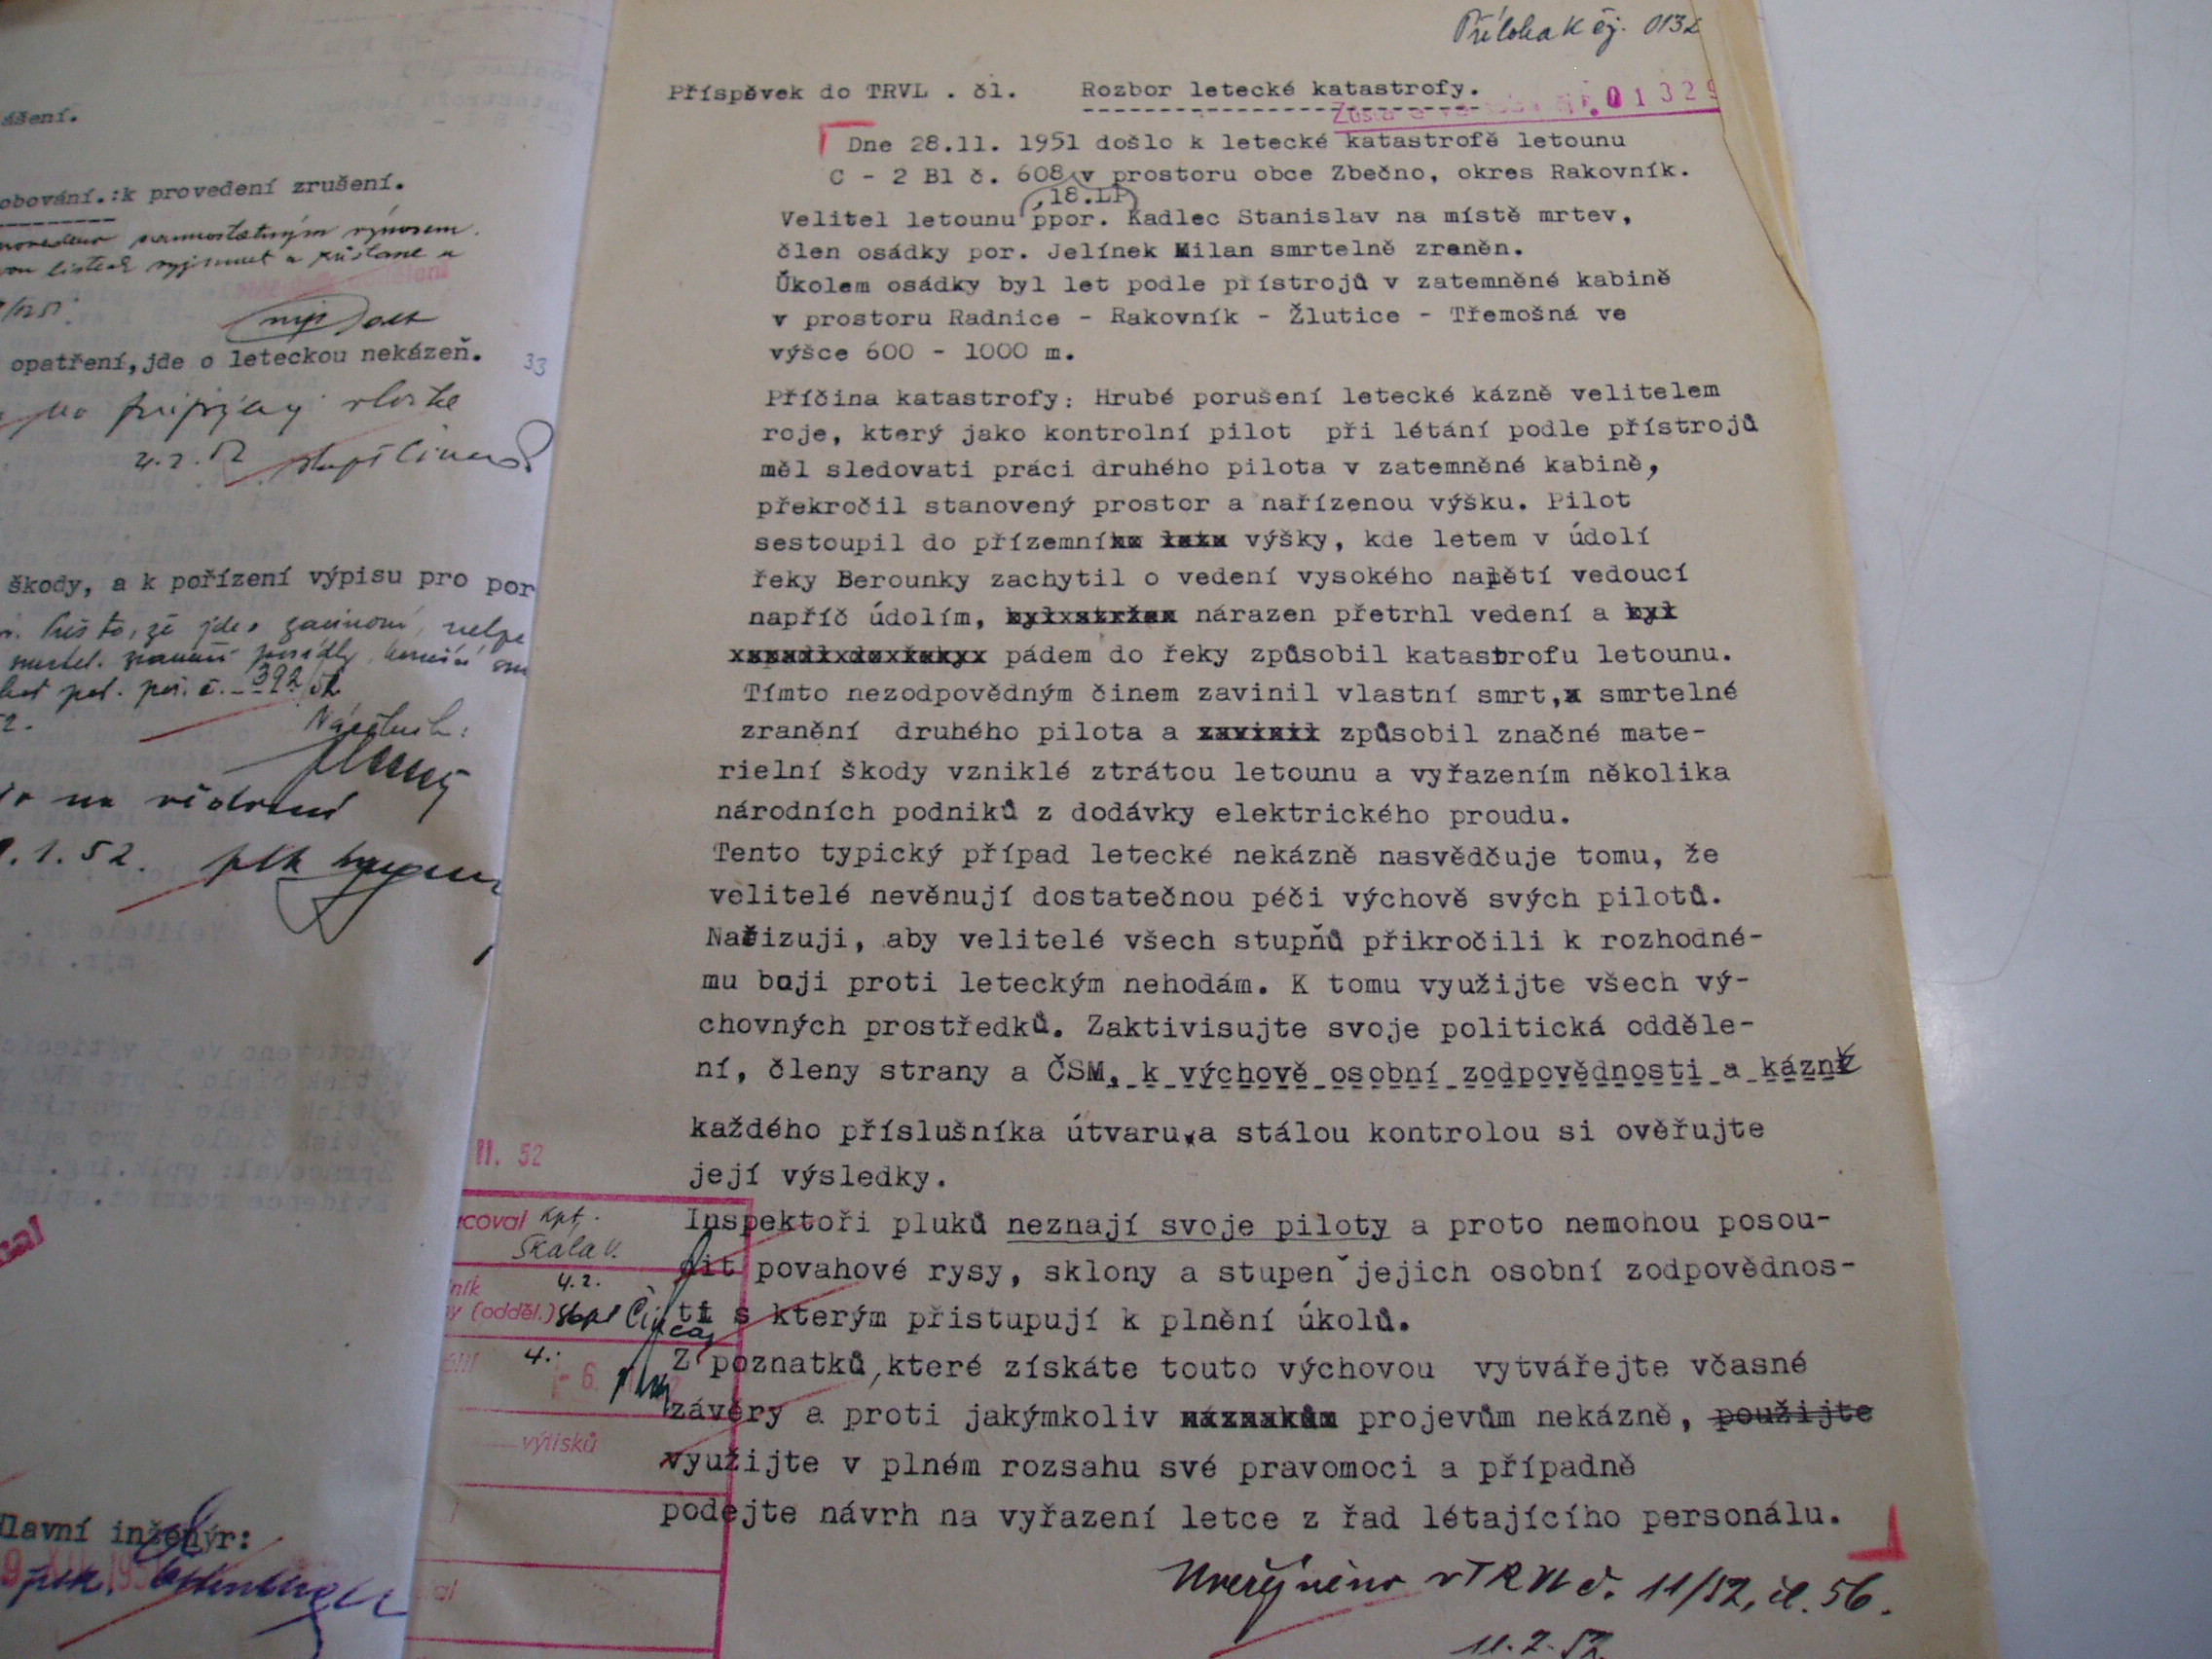 ášení.
obování.:k provedení zrušení.
opatření,jde o leteckou nekázeň.
33
4.2.52
škody, a k pořízení výpisu pro por
392/52
Náčelník:
.1.52. plk
Hlavní inženýr:
plk.
Příloha k čj. 0132
Příspěvek do TRVL . čl. Rozbor letecké katastrofy.
01329
Dne 28.11. 1951 došlo k letecké katastrofě letounu
C - 2 B1 č. 608 v prostoru obce Zbečno, okres Rakovník.
,18.LP
Velitel letounu ppor. Kadlec Stanislav na místě mrtev,
člen osádky por. Jelínek Milan smrtelně zraněn.
Úkolem osádky byl let podle přístrojů v zatemněné kabině
v prostoru Radnice - Rakovník - Žlutice - Třemošná ve
výšce 600 - 1000 m.
Příčina katastrofy: Hrubé porušení letecké kázně velitelem
roje, který jako kontrolní pilot při létání podle přístrojů
měl sledovati práci druhého pilota v zatemněné kabině,
překročil stanovený prostor a nařízenou výšku. Pilot
sestoupil do přízemní výšky, kde letem v údolí
řeky Berounky zachytil o vedení vysokého napětí vedoucí
napříč údolím, nárazen přetrhl vedení a
pádem do řeky způsobil katastrofu letounu.
Tímto nezodpovědným činem zavinil vlastní smrt, smrtelné
zranění druhého pilota a způsobil značné mate-
rielní škody vzniklé ztrátou letounu a vyřazením několika
národních podniků z dodávky elektrického proudu.
Tento typický případ letecké nekázně nasvědčuje tomu, že
velitelé nevěnují dostatečnou péči výchově svých pilotů.
Nařizuji, aby velitelé všech stupňů přikročili k rozhodné-
mu boji proti leteckým nehodám. K tomu využijte všech vý-
chovných prostředků. Zaktivisujte svoje politická odděle-
ní, členy strany a ČSM, k výchově osobní zodpovědnosti a kázně
každého příslušníka útvaru a stálou kontrolou si ověřujte
její výsledky.
Inspektoři pluků neznají svoje piloty a proto nemohou posou-
dit povahové rysy, sklony a stupeň jejich osobní zodpovědnos-
ti s kterým přistupují k plnění úkolů.
Z poznatků, které získáte touto výchovou vytvářejte včasné
závěry a proti jakýmkoliv projevům nekázně, použijte
využijte v plném rozsahu své pravomoci a případně
podejte návrh na vyřazení letce z řad létajícího personálu.
II. 52
coval kpt.
Skála V.
ník 4.2.
y (odděl.)
výtisků
Uveřejněno v TRVL č. 11/52, čl. 56.
11.2.52